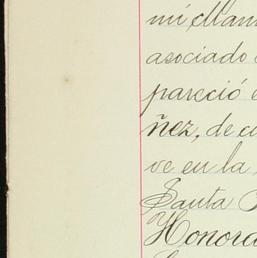 mi Man
asociado
pareció
ñez, de c
ve en la
Santa
Honora